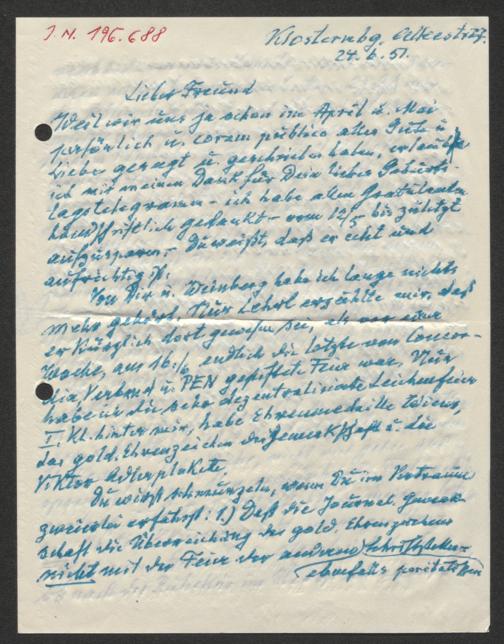 I. N. 196.688
Klosternbg.
24. 6. 51.
Lieber Freund
Weil wir uns ja schon im April u. Mai
persönlich u. coram publico alles Gute u.
Liebe gesagt u. geschrieben haben, erlaube
ich mir meinen Dank für Dein liebes Geburts-
tagstelegramm - ich habe allen Gratulanten
handschriftlich gedankt - bis zuletzt
aufzusparen. Du weißt, daß er echt und
aufrichtig ist.
Von Dir u. Weinberg habe ich lange nichts
mehr gehört. Nur erzählte mir, daß
er kürzlich dort gewesen sei, als vor einer
Woche, am 16./6. endlich die letzte von Concor-
dia, Verband u. PEN gestiftete Feier war. Nun
habe ich die sehr dezentralisierte Leichenfeier
hinter mir, habe Ehrenmedaille Wiens,
I. Kl.
das gold. Ehrenzeichen der Gewerkschaft u. die
Viktor Adlerplakette.
Du wirst schmunzeln, wenn Du im Vertrauen
zweierlei erfährst: 1.) Daß die Journal. Gewerk-
schaft die Überreichung des gold. Ehrenzeichens
nicht mit der Feier der anderen Schriftsteller-
ebenfalls